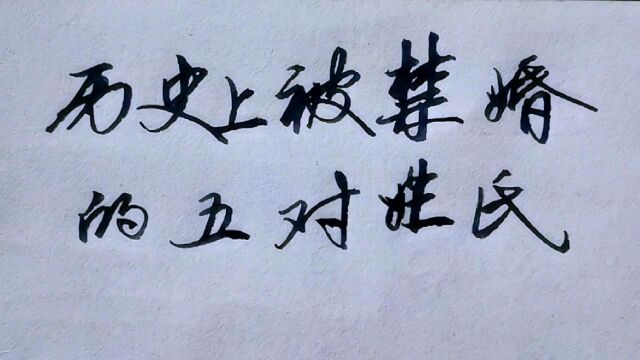 历史上被禁婚
的五对姓氏